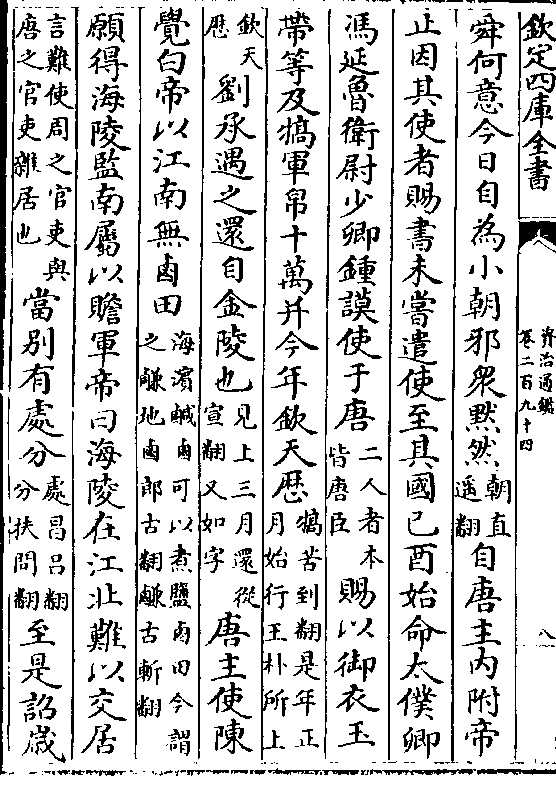 欽定四庫全書
資治通鑑
卷二百九十四
八
舜何意今日自為小朝邪衆黙然朝直遥翻自唐主内附帝
止因其使者賜書未嘗遣使至其國己酉始命太僕卿
馮延魯衛尉少卿鍾謨使于唐二人者本皆唐臣賜以御衣玉
帶等及犒軍帛十萬并今年欽天厯犒苦到翻是年正月始行王朴所上
欽天厯劉承遇之還自金陵也見上三月還從宣翻又如字唐主使陳
覺白帝以江南無鹵田海濱鹹鹵可以煮鹽鹵田今謂之鹻地鹵郎古翻鹻古斬翻
願得海陵監南屬以贍軍帝曰海陵在江北難以交居
言難使周之官吏與唐之官吏雜居也當别有處分處昌呂翻分扶問翻至是詔歲